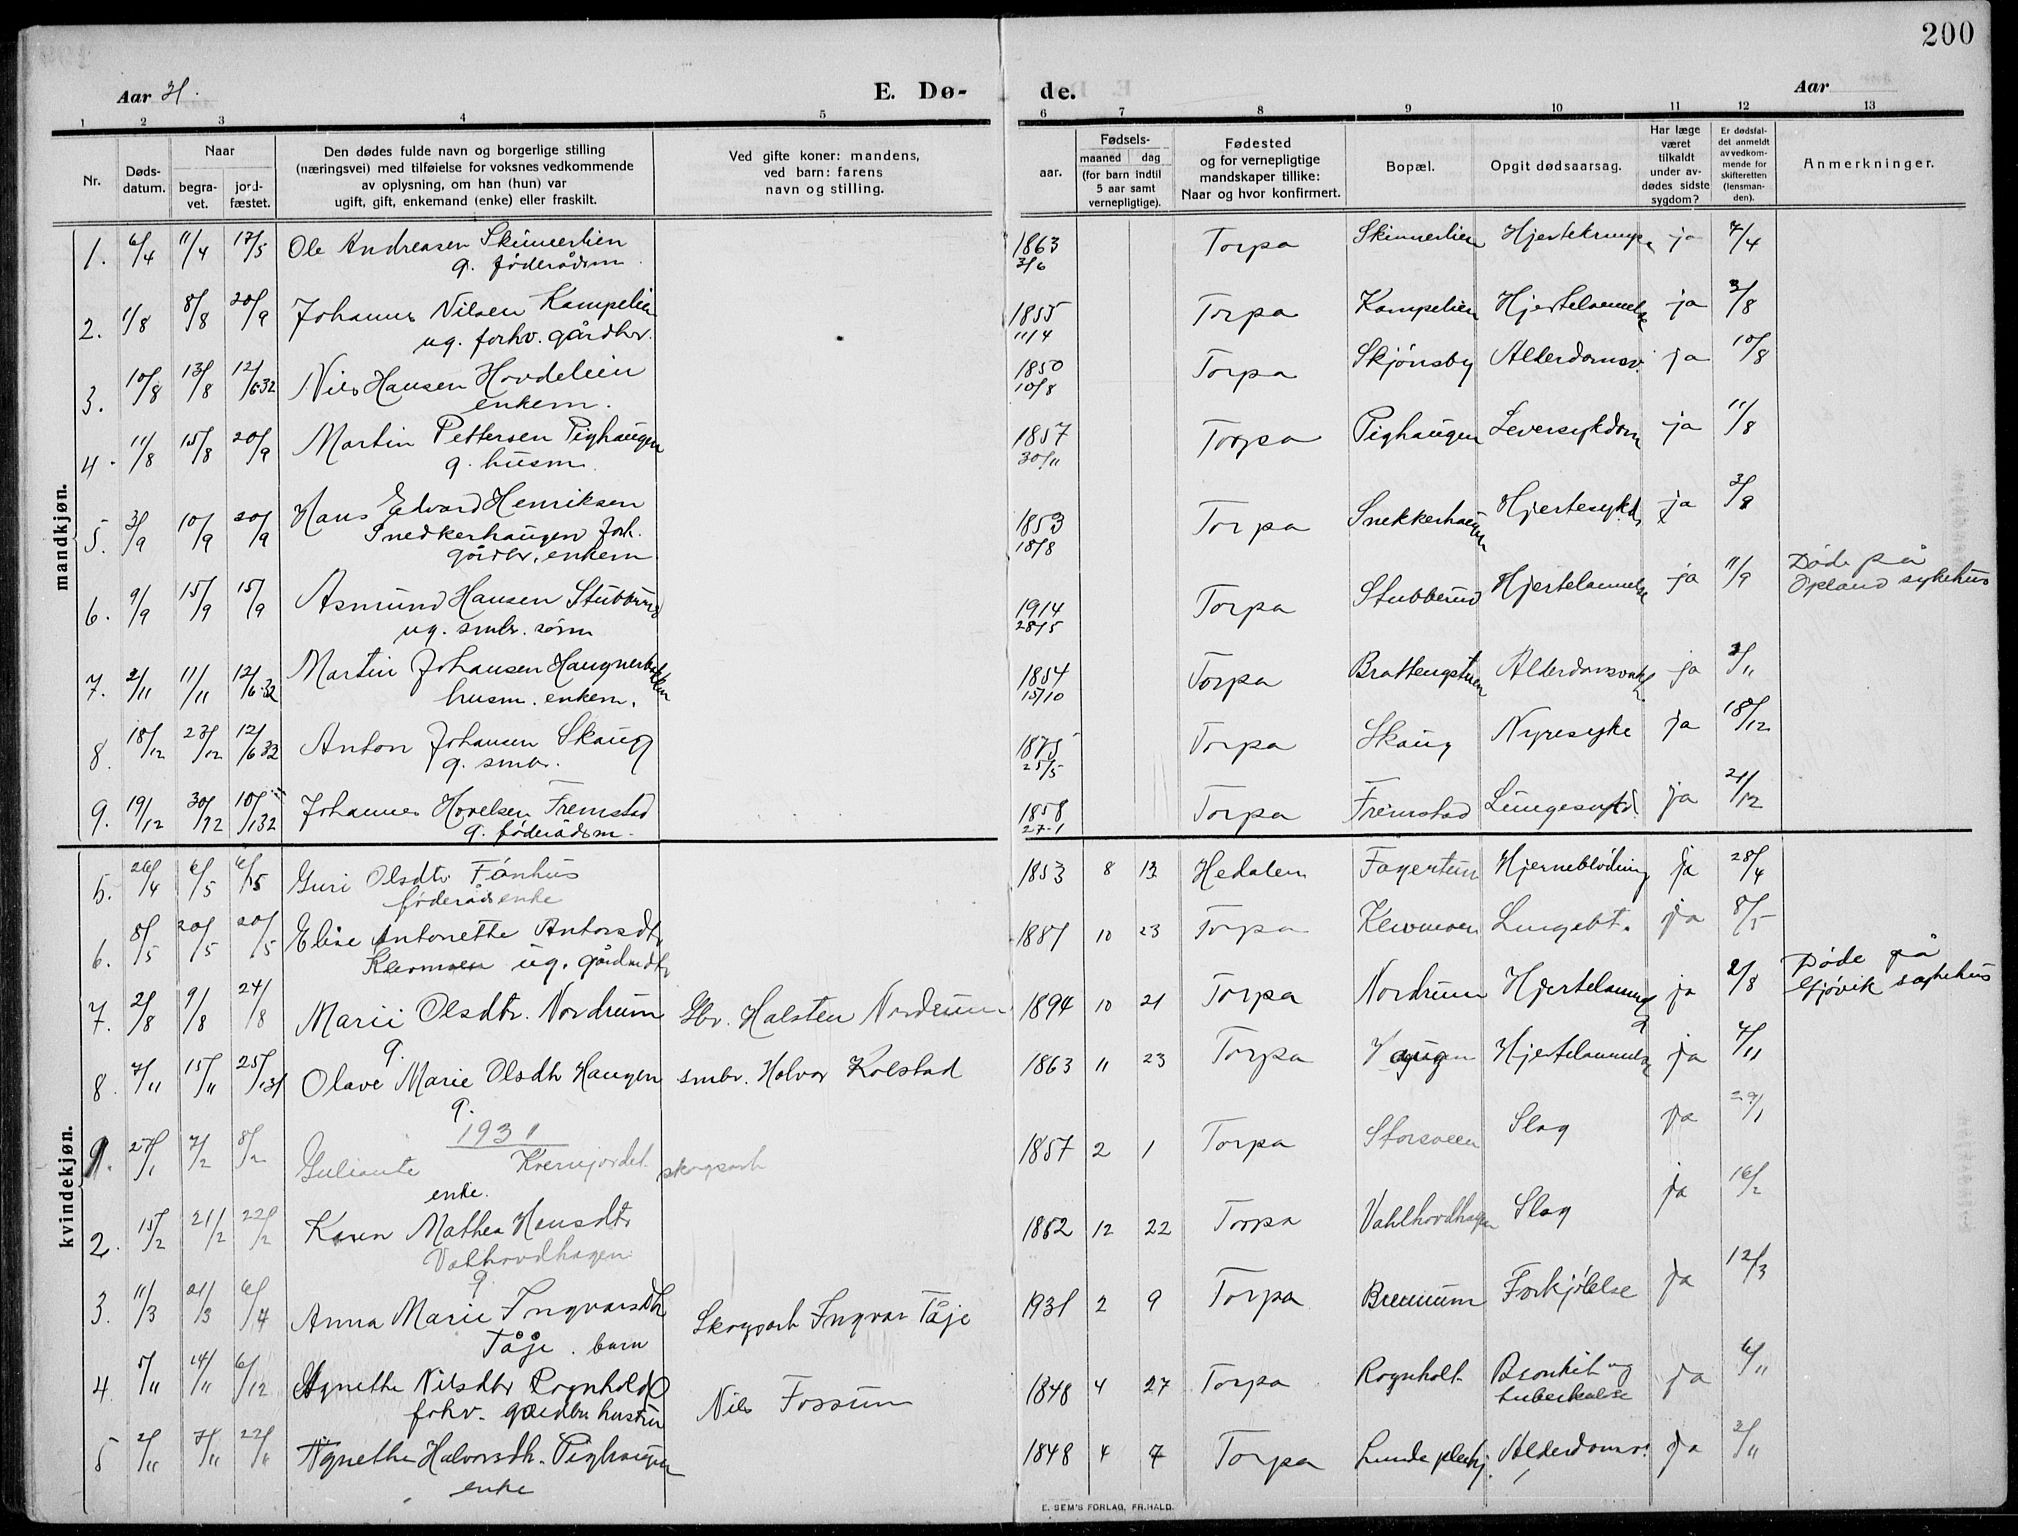 200
Aar 31.
E. Dø-
de.
Aar
1 2 3 4 5 6 7 8 9 10 11 12 13
mandkjøn.
kvindekjøn.
Nr.
Døds-
datum.
Naar
begra-
vet.
jord-
fæstet.
Den dødes fulde navn og borgerlige stilling
(næringsvei) med tilføielse for voksnes vedkommende
av oplysning, om han (hun) var
ugift, gift, enkemand (enke) eller fraskilt.
Ved gifte koner: mandens,
ved barn: farens
navn og stilling.
Fødsels-
aar.
maaned dag
(for barn indtil
5 aar samt
vernepligtige).
Fødested
og for vernepligtige
mandskaper tillike:
Naar og hvor konfirmert.
Bopæl.
Opgit dødsaarsag.
Har læge
været
tilkaldt
under av-
dødes sidste
sygdom?
Er dødsfal-
det anmeldt
av vedkom-
mende for
skifteretten
(lensman-
den).
Anmerkninger.
1. 6/4 11/4 17/5 Ole Andreasen Skinnerlien 1863 Torpa Skinnerlien Hjertekrampe ja 7/4
g. føderådsm. 3/6
2. 1/8 8/8 20/9 Johannes Nilsen Kampelien 1855 Torpa Kampelien Hjertelammelse ja 3/8
ug. forhv. gårdbr. 11/4
3. 10/8 13/8 12/6 32 Nils Hansen Hovdelien 1850 Torpa Skjønsby Alderdomsv. ja 10/8
enkem. 10/8
4. 11/8 15/8 20/9 Martin Pettersen Pighaugen 1857 Torpa Pighaugen Leversykdom ja 11/8
g. husm. 30/11
5. 3/9 10/9 20/9 Hans Edvard Henriksen 1853 Torpa Snekkerhaugen Hjertesykd. ja 3/9
Snedkerhaugen forh. 18/8
gårdbr. enkem
6. 9/9 15/9 15/9 Asmund Hansen Stubberud 1914 Torpa Stubberud Hjertelammelse ja 11/9 Døde på
ug. smbr. sønn 28/5 Opland sykehus
7. 2/11 11/11 12/6 32 Martin Johansen Haugnerbakken 1854 Torpa Brattengstuen Alderdomsvakh. ja 3/11
husm. enkem. 15/10
8. 18/12 23/12 12/6 32 Anton Johansen Skaug 1875 Torpa Skaug Nyresyke ja 18/12
g. smbr. 25/5
9. 19/12 30/12 10/1 32 Johannes Hovelsen Fremstad 1858 Torpa Fremstad Lungesykd. ja 21/12
g. føderådsm. 27-1
5. 26/4 6/5 6/5 Guri Olsdtr. Fønhus 1853 8 13 Hedalen Fagertun Hjerneblødning ja 28/4
føderådsenke
6. 8/5 20/5 20/5 Elise Antonette Antonsdtr 1887 10 23 Torpa Klevmoen Lungebt. ja 8/5
Klevmoen ug. gårdmdtr
7. 2/8 9/8 24/8 Marii Olsdtr. Nordrum Gbr. Halsten Nordrum 1894 10 21 Torpa Nordrum Hjertelammelse ja 2/8 Døde på
g. Gjøvik sykehus
8. 7/11 15/11 25/1 31 Olave Marie Olsdtr Haugen smbr. Halvor Kolstad 1863 11 23 Torpa Haugen Hjertelammelse ja 7/11
g.
1931
1. 27/1 7/2 8/2 Guliante Kvernjordet skogsarb 1857 2 1 Torpa Storsveen Slag ja 29/1
enke.
2. 15/2 21/2 22/2 Karen Mathea Hansdtr 1862 12 22 Torpa Vahlhovdhagen Slag ja 16/2
Valhovdhagen
g.
3. 11/3 21/3 6/4 Anna Marie Ingvarsdtr Skogsarb Ingvar Tåje 1931 2 9 Torpa Brennum Forkjølelse ja 12/3
Tåje. barn
4. 5/11 14/11 6/12 Agnethe Nilsdtr Rognholdt Nils Fossum 1848 4 27 Torpa Rognholt Bronkit og ja 6/11
fohv. gårdbr hustru tuberkulse
5 2/11 7/11 22/11 Agnethe Halvorsdtr. Pighaugen 1848 4 7 Torpa Lunde pleihj. Alderdomsv. ja 3/11
enke
E. SEM'S FORLAG, FR.HALD.